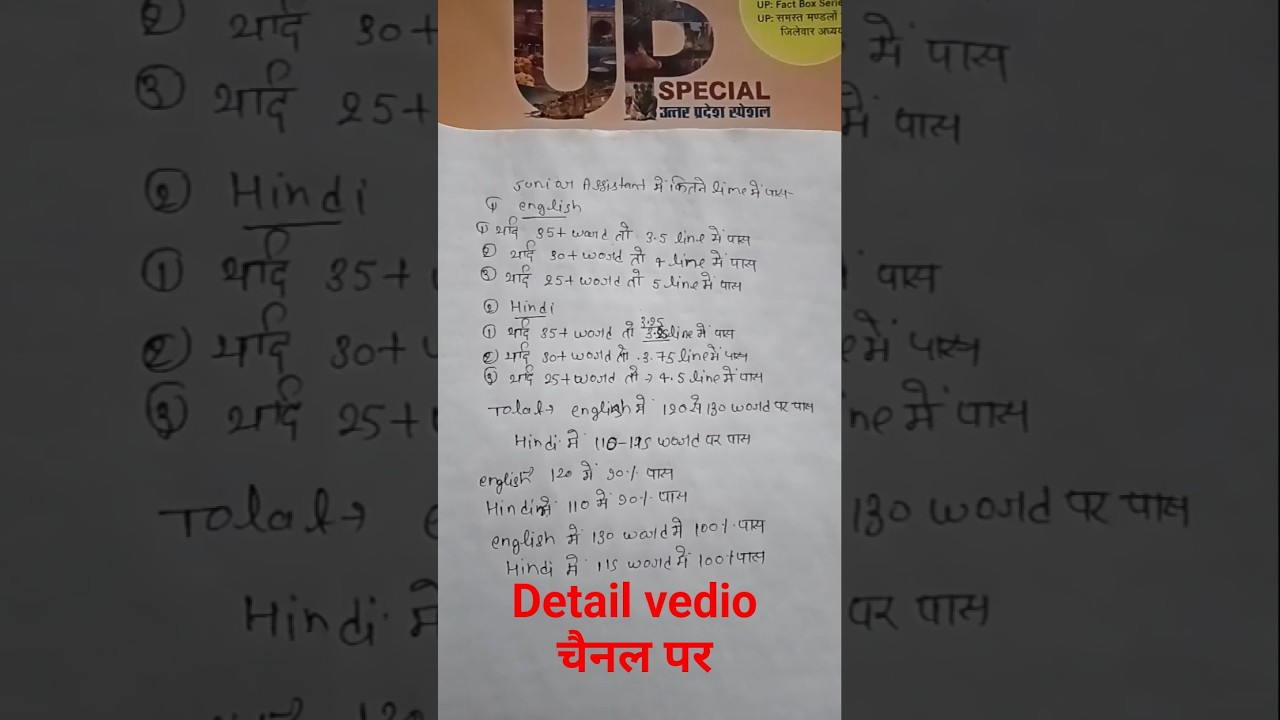 UP: Fact Box Serie
UP: समस्त मण्डलों
जिलेवार अध्यय
UP
SPECIAL
उत्तर प्रदेश स्पेशल
Junior Assistant में कितने line में पास-
① english
① यदि 35+ word तो 3.5 line में पास
② यदि 30+ word तो 4 line में पास
③ यदि 25+ word तो 5 line में पास
② Hindi
① यदि 35+ word तो 3.25 line में पास
② यदि 30+ word तो 3.75 line में पास
③ यदि 25+ word तो → 4.5 line में पास
Total→ english में 120 से 130 word पर पास
Hindi में 110-115 word पर पास
english में 120 में 90% पास
Hindi में 110 में 90% पास
english में 130 word में 100% पास
Hindi में 115 word में 100% पास
Detail vedio
चैनल पर